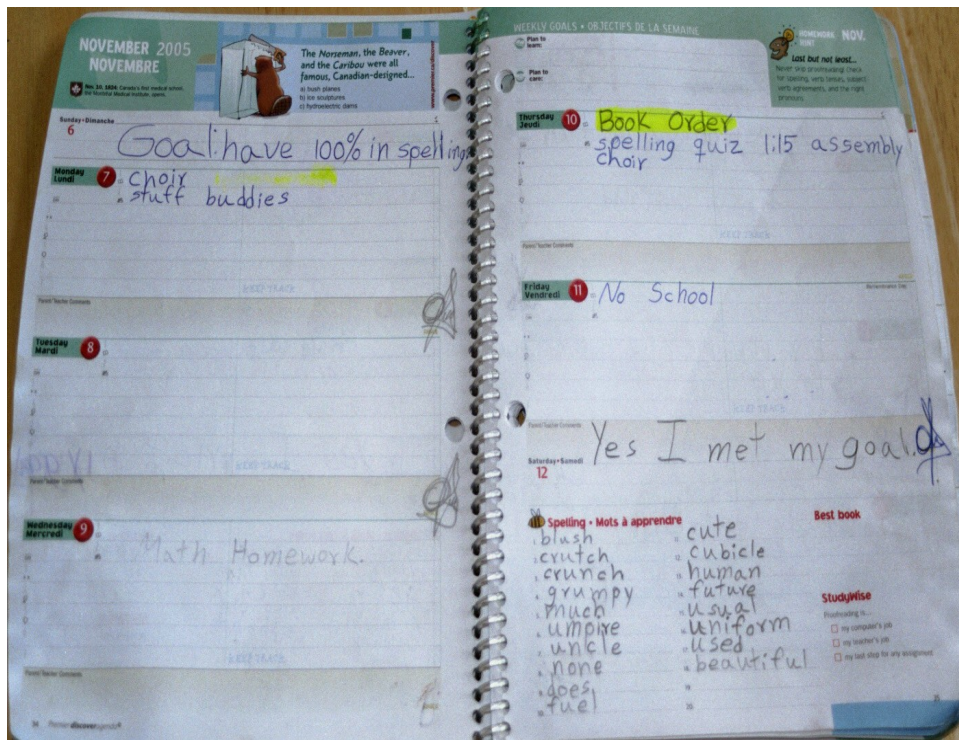 NOVEMBER 2005
NOVEMBRE
Nov. 10, 1824: Canada's first medical school,
the Montreal Medical Institute, opens.
The Norseman, the Beaver,
and the Caribou were all
famous, Canadian-designed...
a) bush planes
b) ice sculptures
c) hydroelectric dams
Sunday • Dimanche
6
Goal: have 100% in spelling.
Monday
Lundi
7
choir
stuff buddies
Parents'/Teacher Comments
Tuesday
Mardi
8
Parents'/Teacher Comments
Wednesday
Mercredi
9
Math Homework.
Parents'/Teacher Comments
WEEKLY GOALS • OBJECTIFS DE LA SEMAINE
Plan to
learn:
Plan to
care:
HOMEWORK
HINT
NOV.
Last but not least...
Never skip proofreading! Check
for spelling, verb tenses, subject
verb agreements, and the right
pronouns.
Thursday
Jeudi
10
Book Order
spelling quiz 1:15 assembly
choir
Parents'/Teacher Comments
Friday
Vendredi
11
Remembrance Day
No School
Parents'/Teacher Comments
Yes I met my goal.
Saturday • Samedi
12
Spelling • Mots à apprendre
blush
crutch
crunch
grumpy
much
umpire
uncle
none
does
fuel
cute
cubicle
human
future
usual
uniform
used
beautiful
Best book
StudyWise
Proofreading is...
my computer's job
my teacher's job
my last step for any assignment